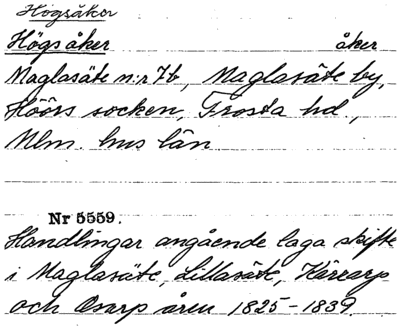 Högsåker
Högsåker åker
Maglasäte n:r 7b, Maglasäte by,
Höörs socken, Frosta hd.,
Mlm. hus län
Nr 5559.
Handlingar angående laga skifte
i Maglasäte, Lillasäte, Kärrarp
och Osarp åren 1825-1839.